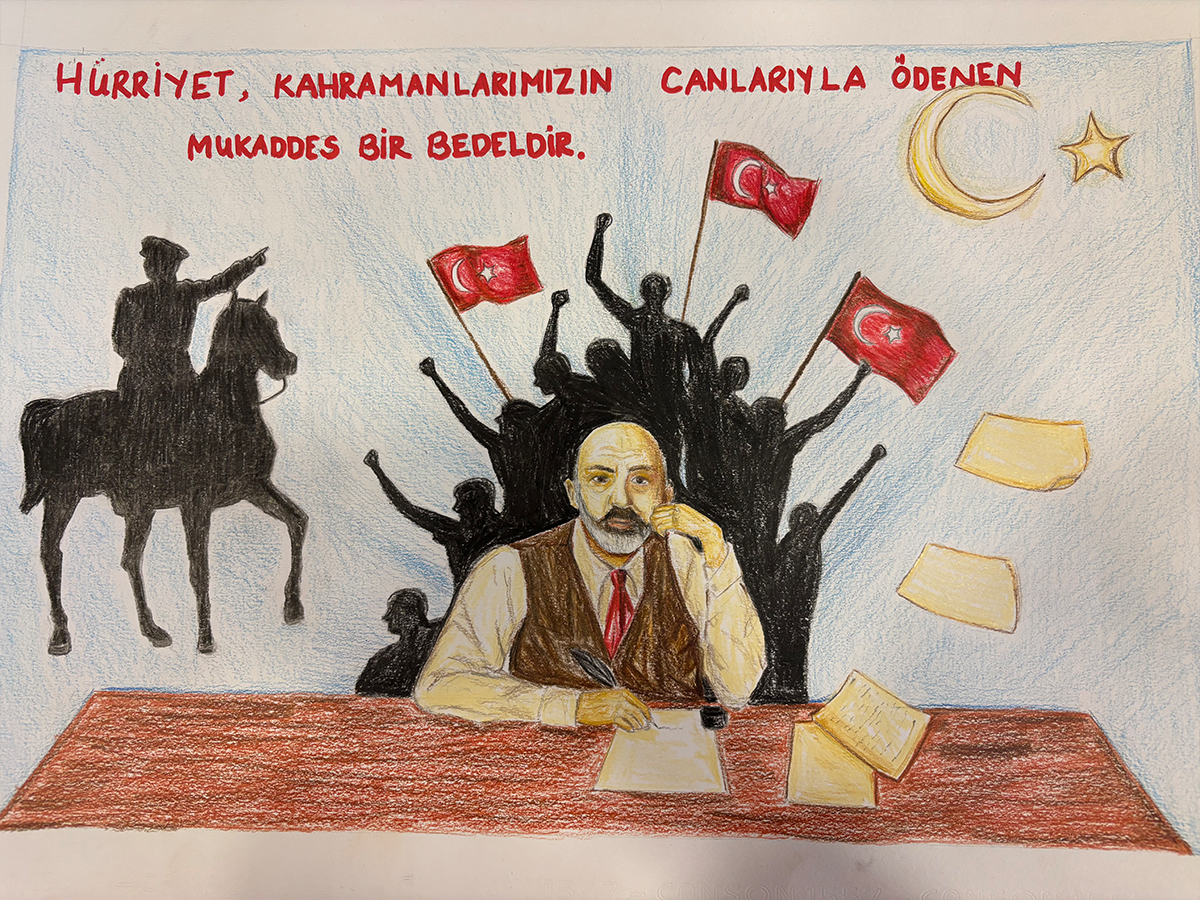 HÜRRİYET, KAHRAMANLARIMIZIN CANLARIYLA ÖDENEN
MUKADDES BİR BEDELDİR.